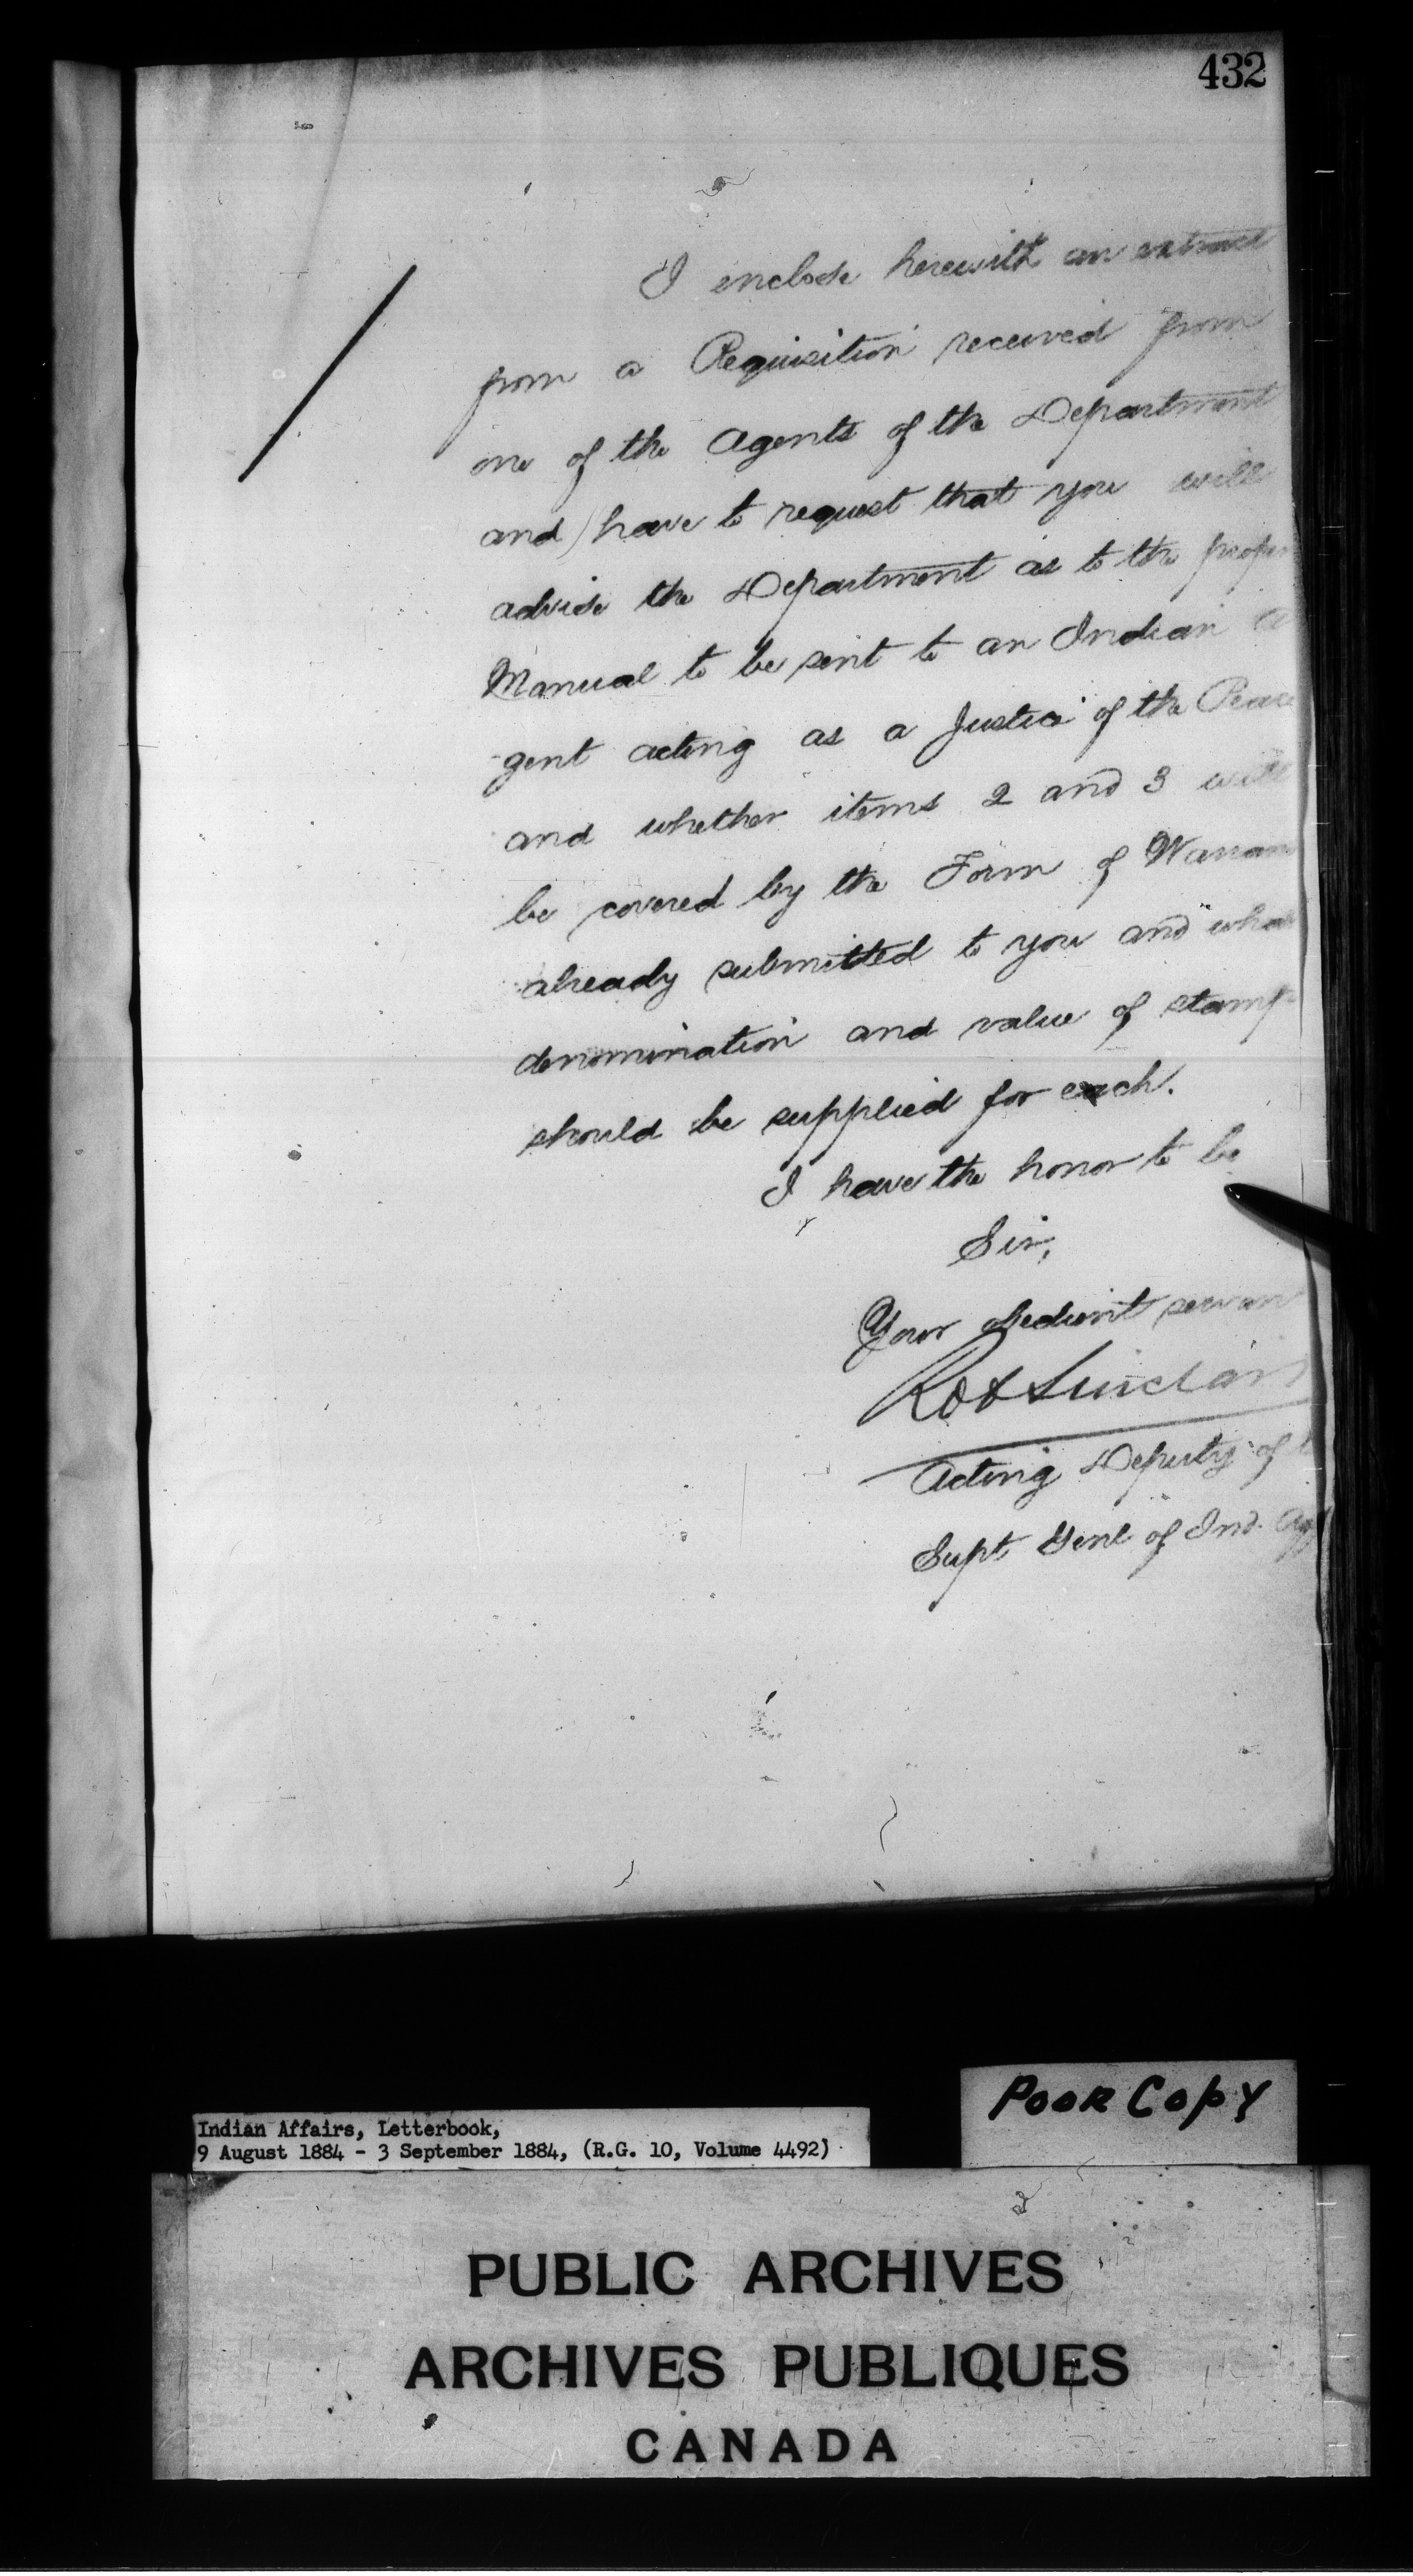 432
I enclose herewith an extract
from a Requisition received from
one of the Agents of the Department
and have to request that you will
advise the Department as to the proper
Manual to be sent to an Indian A
gent acting as a Justice of the Peace
and whether items 2 and 3 will
be covered by the Form of Warran
already submitted to you and what
denomination and value of stamp
should be supplied for each.
I have the honor to be
Sir,
Your obedient servan
Rob Sinclair
Acting Deputy of
Supt Genl of Ind. Aff
POOR COPY
Indian Affairs, Letterbook,
9 August 1884 - 3 September 1884, (R.G. 10, Volume 4492)
PUBLIC ARCHIVES
ARCHIVES PUBLIQUES
CANADA